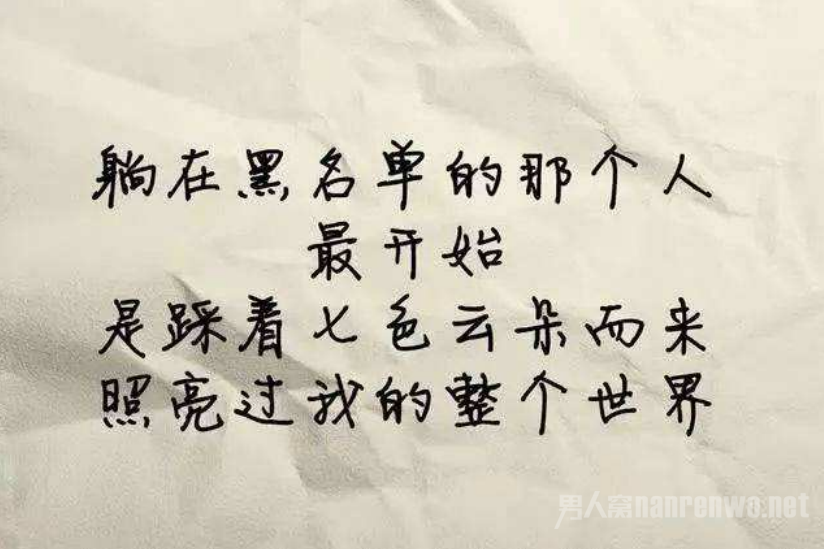 躺在黑名单的那个人
最开始
是踩着七色云朵而来
照亮过我的整个世界
男人窝nanrenwo.net